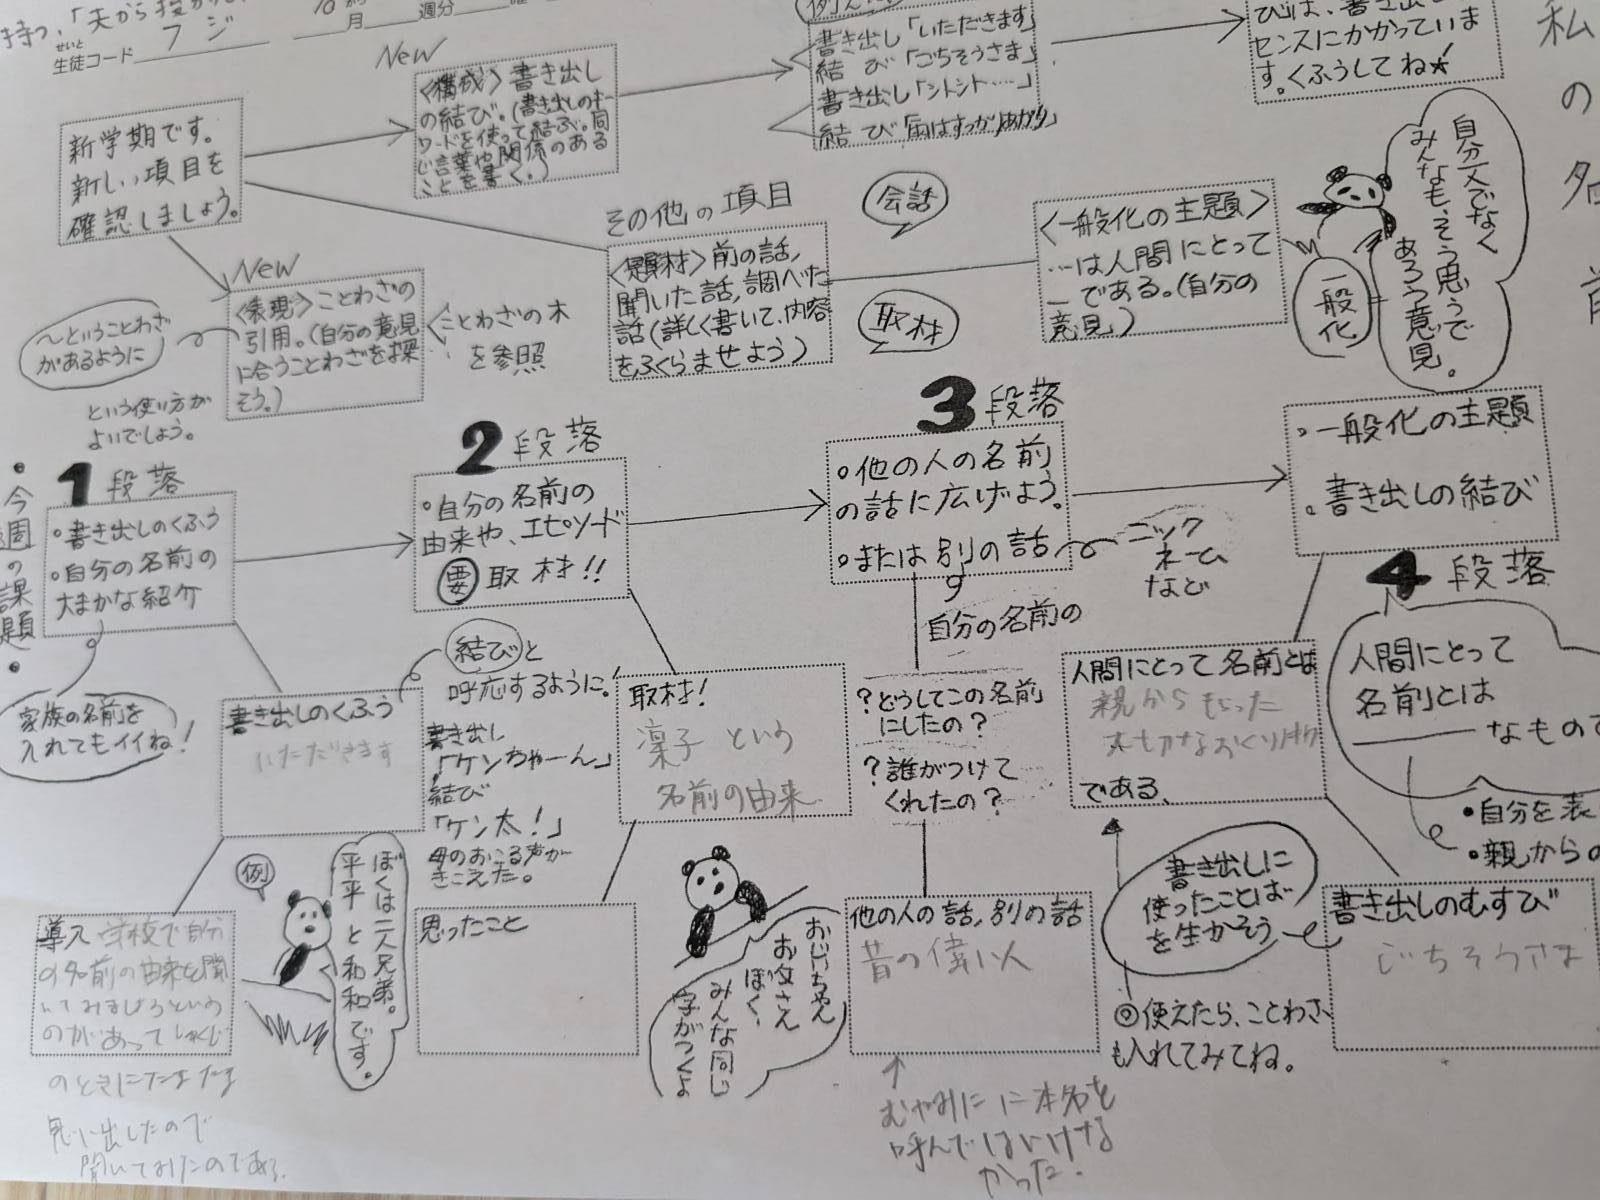 持つ、「天から授かった
せいと
生徒コード フジ
月 週分
New
新学期です。
新しい項目を
確認しましょう。
<構成>書き出し
の結び。(書き出しのキー
ワードを使って結ぶ。同
じ言葉や関係のある
ことを書く。)
書き出し「いただきます」
結 び「ごちそうさま」
書き出し「シトシト……」
結 び「雨はすっかりあがり」
びは、書き出し
センスにかかっていま
す。くふうしてね★
私の名前
New
<表現>ことわざの
引用。(自分の意見
に合うことわざを探
そう。)
〜ということわざ
があるように
という使い方が
よいでしょう。
ことわざの木
を参照
その他の項目
<題材>前の話、
聞いた話、調べた
話(詳しく書いて、内容
をふくらませよう)
会話
取材
<一般化の主題>
…は人間にとって
―である。(自分の
意見)
一般化
自分だけでなく
みんなもそう思うで
あろう意見。
・今週の課題・
1段落
・書き出しのくふう
・自分の名前の
大まかな紹介
家族の名前を
入れてもイイね!
2段落
・自分の名前の
由来や、エピソード
要取材!!
3段落
・他の人の名前
の話に広げよう。
・または別の話
ニック
ネーム
など
自分の名前の
・一般化の主題
・書き出しの結び
4段落
人間にとって
名前とは
なもので
・自分を表
・親からの
書き出しのくふう
いただきます
結びと
呼応するように!
書き出し
「ケンちゃーん」
結び
「ケン太!」
母のおこる声が
きこえた。
取材!
凛子という
名前の由来
?どうしてこの名前
にしたの?
?誰がつけて
くれたの?
人間にとって名前とは
親からもらった
大切なおくり物
である、
導入 学校で自分
の名前の由来を聞
いてみましょうという
のがあってしゅくだ
のときにたまたま
思い出したので
聞いてみたのである。
例
ぼくは二人兄弟。
平平と和和です。
思ったこと
おじいちゃん
お父さん
ぼく、
みんな同じ
字がつくよ
他の人の話,別の話
昔の偉い人
むやみに本名を
呼んではいけな
かった。
書き出しに
使ったことば
を生かそう
◎使えたら、ことわざ
も入れてみてね。
書き出しのむすび
ごちそうさま